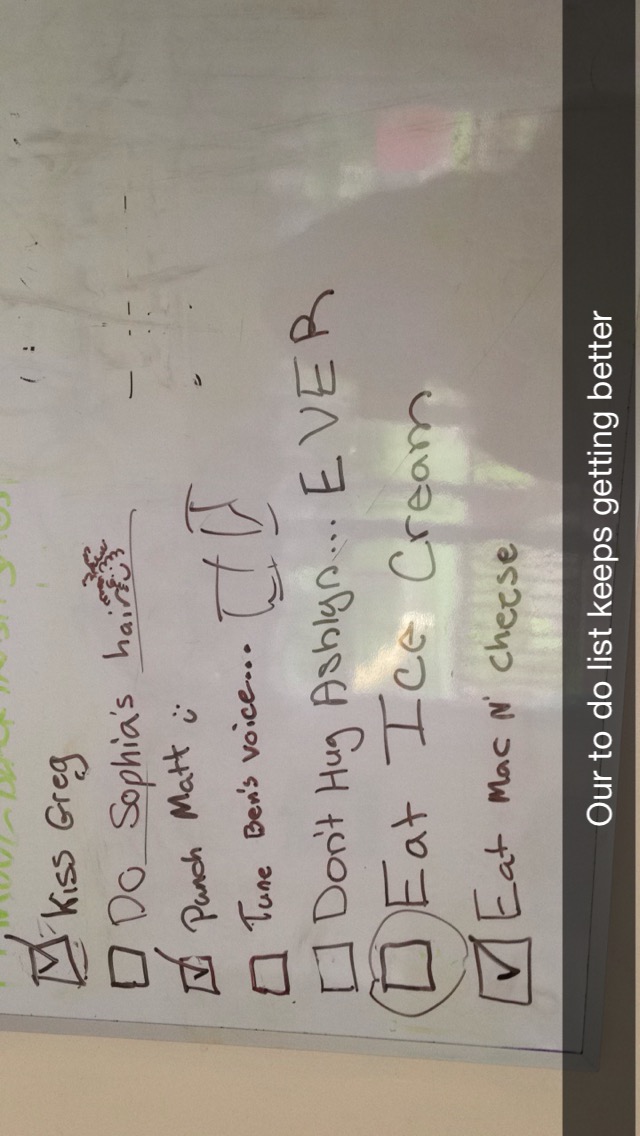 Kiss Greg
Do Sophia's hair
Punch Matt :)
Tune Ben's voice...
Don't Hug Ashlyn... EVER
Eat Ice Cream
Eat Mac N' cheese
Our to do list keeps getting better